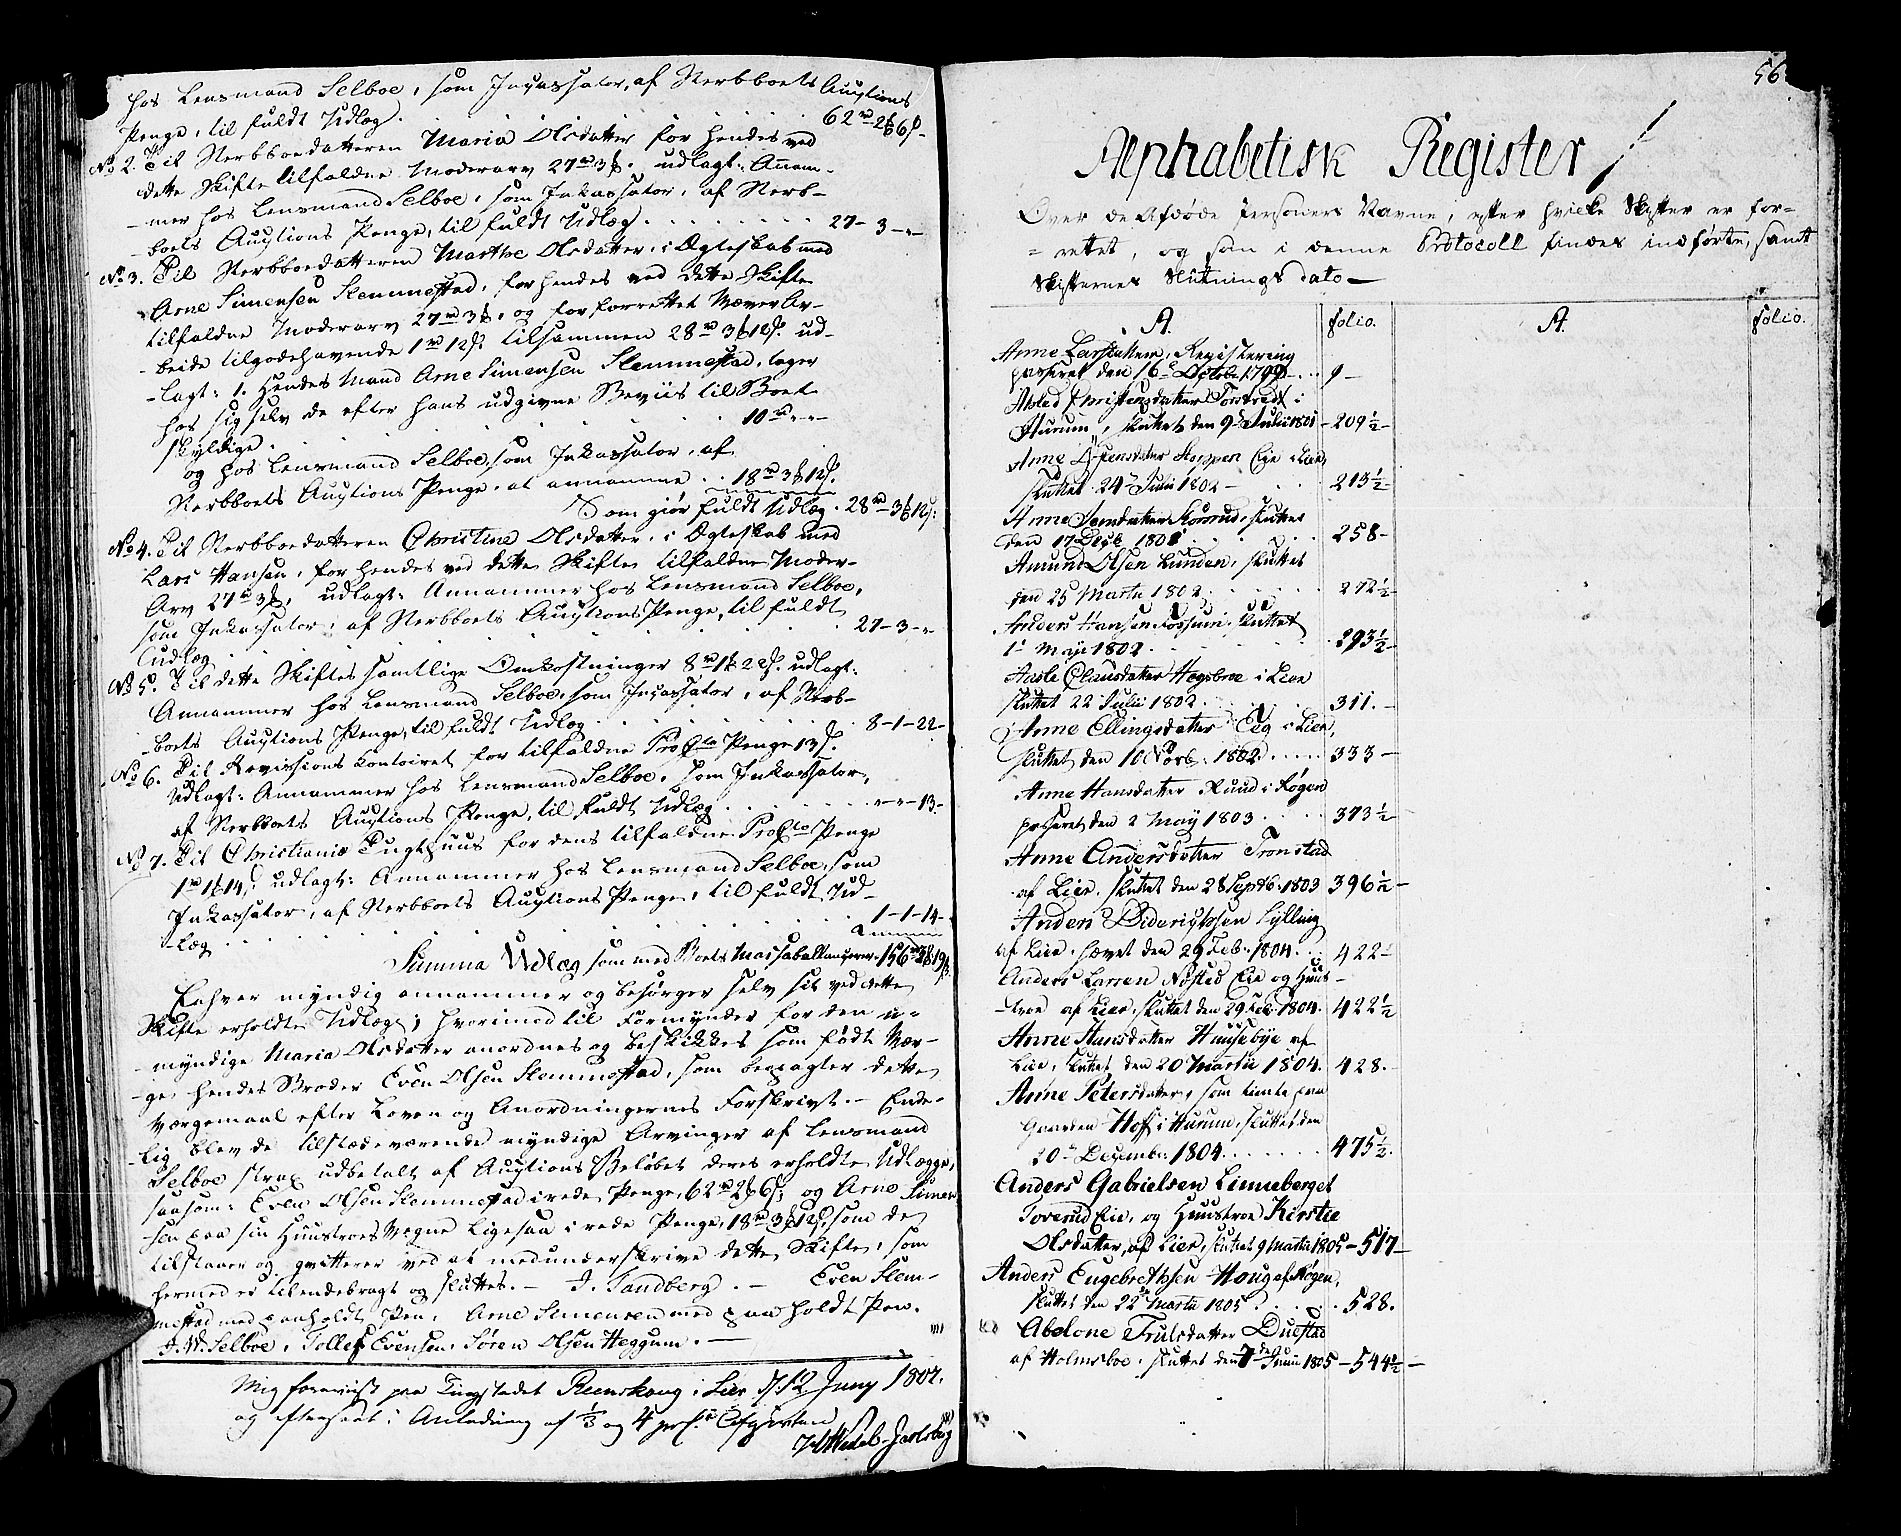 hos Lensmand Selboe, som Incassator, af Sterbboets Auctions
Penge, til fuldt Udlæg. 62 rd 2 6 s
No 2. Til Sterbboedatteren Maria Olsdatter for hendes ved
dette Skifte tilfaldne Moderarv 27 rd 3 udlagt: Annam-
-mer hos Lensmand Selboe, som Inkassator, af Sterb-
-boets Auctions Penge, til fuldt Udlæg 27- 3 -"-
No 3. Til Sterbboedatteren Marthe Olsdatter, i Ægteskab med
Arne Simensen Slemmestad, for hendes ved dette Skifte
tilfaldne Moderarv 27 rd 3, og for forrettet Væver Ar-
-beide tilgodehavende 1 rd 12 s. tilsammen 28 rd 3 12 s. ud-
-lagt: 1. Hendes Mand Arne Simensen Slemmestad, tager
hos sig selv de efter hans udgivne Beviis til Boet
skyldige. 10 rd " "
og hos Lensmand Selboe, som Inkassator, af
Sterbboets Auctions Penge, at annamme 18 rd 3 12 s.
Som giør fuldt Udlæg. 28 rd 3 12 s.
No 4. Til Sterbboedatteren Christine Olsdatter, i Ægteskab med
Lars Hansen, for hendes ved dette Skifte tilfaldne Moder-
Arv 27 rd 3, udlagt: Annammer hos Lensmand Selboe,
som Inkassator, af Sterbboets Auctions Penge, til fuldt
Udlæg 27- 3 -"-
No 5. Til dette Skiftes samtlige Omkostninger 8 rd 1 22 s. udlagt:
Annammer hos Lensmand Selboe, som Incassator, af Sterb-
-boets Auctions Penge, til fuldt Udlæg 8-1-22-
No 6. Til Revisions Contoiret for tilfaldne Pro Cto Penge 13 s.
Udlagt: Annammer hos Lensmand Selboe, som Inkassator,
af Sterbboets Auctions Penge, til fuldt Udlæg "-"-13-
No 7. Til Christianiæ Tugthuus for dens tilfaldne Pro Cto Penge
1 rd 1 14 s, udlagt: Annammer hos Lensmand Selboe, som
Inkassator, af Sterbboets Auctions Penge, til fuldt Ud-
-læg 1-1-14-
Summa Udlæg som med Boets Massa ballancerer. 156 rd 19 s.
Enhver myndig annammer og besørger selv sit ved dette
Skifte erholdte Udlæg; hvorimod til Formynder for den u-
-myndige Maria Olsdatter anordnes og beskikkes som født Vær-
-ge hendes Broder Even Olsen Slemmestad, som modtager dette
Værgemaal efter Loven og Anordningernes Forskrivt.- Ende-
-lig blev de tilstedeværende myndige Arvinger af Lensmand
Selboe strax udbetalt af Auctions Beløbet deres erholdte Udlægge,
saasom: Even Olsen Slemmestad i rede Penge, 62 rd 2 6 s; og Arne Simen
sen paa sin Huustroes Vegne ligesaa i rede Penge, 18 rd 3 12 s, som de
tilstaaer og qvitterer ved at medunderskrive dette Skifte, som
hermed er tilendebragt og sluttes.- J. Sandberg.- Even Slem-
-mestad med paaholdt Pen, Arne Simensen med paaholdt Pen.
J. W. Selboe, Tollef Evensen, Søren Olsen Heggum.-
Mig foreviist paa Tingstedet Reenskoug i Lier d. 12 Juny 1807.
og efterseet i Anledning af 1/3 og 4 prCt Afgivten
Wedel-Jarlsberg
56
Alphabetisk Register
Over de Afdøde Personers Navne, efter hvilke Skifter er for=
=rettet, og som i denne Protocoll findes indførte, samt
Skifternes Slutnings dato-
A. folio. A. folio.
Anne Larsdatter, Registering
passeret den 16 October 1799 9-
Christensdatter i
Hurum, sluttet den 9 Julii 1801 -209½-
Anne Stoppen Eie i Lier,
sluttet 24 Julii 1802- 213½-
Anne sluttet
den 17 Decb 1801 258-
Amund Olsen Lunden, sluttet
den 25 Martii 1802 272½-
Anders Hansen Fossum, sluttet
1 Maji 1802 293½-
Aasle Clausdatter Hegsbroe i Lier
sluttet 22 Julii 1802 311.-
Anne Ellingsdatter Eeg i Lier,
sluttet den 10 Novb. 1802 333-
Anne Hansdatter Ruud i Røgen
passeret den 2 May 1803 373½-
Anne Andersdatter Tronstad
af Lier, sluttet den 28 Septb. 1803 396½-
Anders Diderichsen Sylling
af Lier, hævet den 29 Feb. 1804 422-
Anders Larsen Nøsted Eie og Huus-
-troe af Lier, sluttet den 29 Feb. 1804. 422½
Anne Hansdatter Huusebye af
Lier, sluttet den 20 Martii 1804. 428.-
Anne Petersdatter, som tiente paa
Gaarden Hof i Hurum, sluttet den
20 December 1804 475½.
Anders Gabrielsen Linneberget
Toverud Eie, og Huustroe Kirstie
Olsdatter, af Lier, sluttet 9 Martii 1805 -517-
Anders Engebrethsen Houg af Røgen,
sluttet den 22 Martii 1805 528.
Abelone Trulsdatter Duestad
af Holmsboe, sluttet den 7de Junii 1805 -544½-